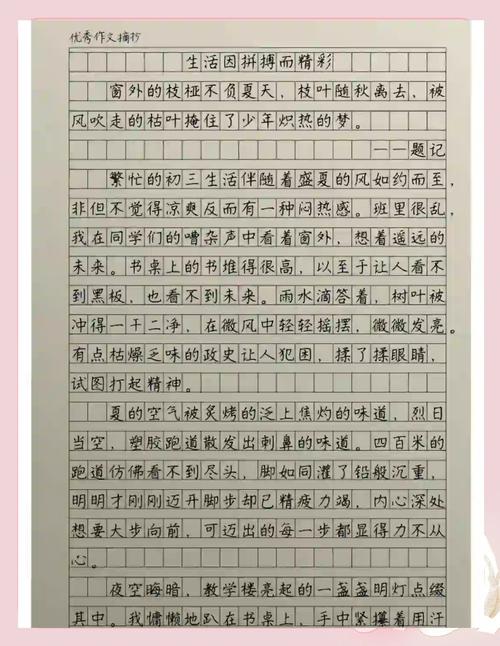 优秀作文摘抄
生活因拼搏而精彩
窗外的枝桠不负夏天，枝叶随秋离去，被
风吹走的枯叶掩住了少年炽热的梦。
——题记
繁忙的初三生活伴随着盛夏的风如约而至，
非但不觉得凉爽反而有一种闷热感。班里很乱，
我在同学们的嘈杂声中看着窗外，想着遥远的
未来。书桌上的书堆得很高，以至于让人看不
到黑板，也看不到未来。雨水滴答着，树叶被
冲得一干二净，在微风中轻轻摇摆，微微发亮。
有点枯燥乏味的政史让人犯困，揉了揉眼睛，
试图打起精神。
夏的空气被炙烤的泛上焦灼的味道，烈日
当空，塑胶跑道散发出刺鼻的味道。四百米的
跑道仿佛看不到尽头，脚如同灌了铅般沉重，
明明才刚刚迈开脚步却已精疲力竭，内心深处
想要大步向前，可迈出的每一步都显得力不从
心。
夜空晦暗，教学楼亮起的一盏盏明灯点缀
其中。我慵懒地趴在书桌上，手中紧攥着用汗